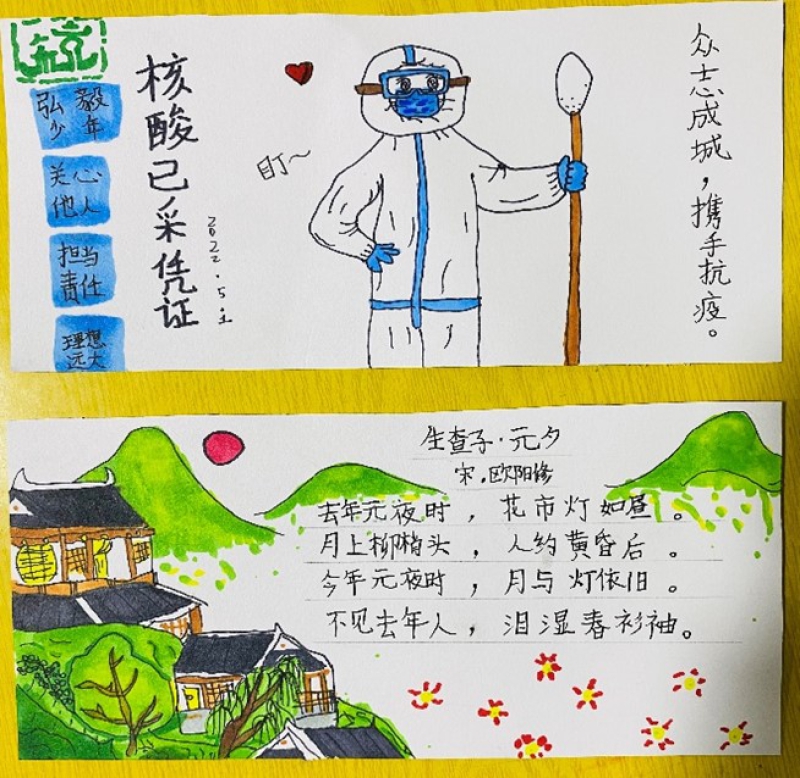 弘毅
少年
关心
他人
担当
责任
理想
远大
核酸已采凭证
2022.5.1
盯~
众志成城，携手抗疫。
生查子·元夕
宋.欧阳修
去年元夜时，花市灯如昼。
月上柳梢头，人约黄昏后。
今年元夜时，月与灯依旧。
不见去年人，泪湿春衫袖。